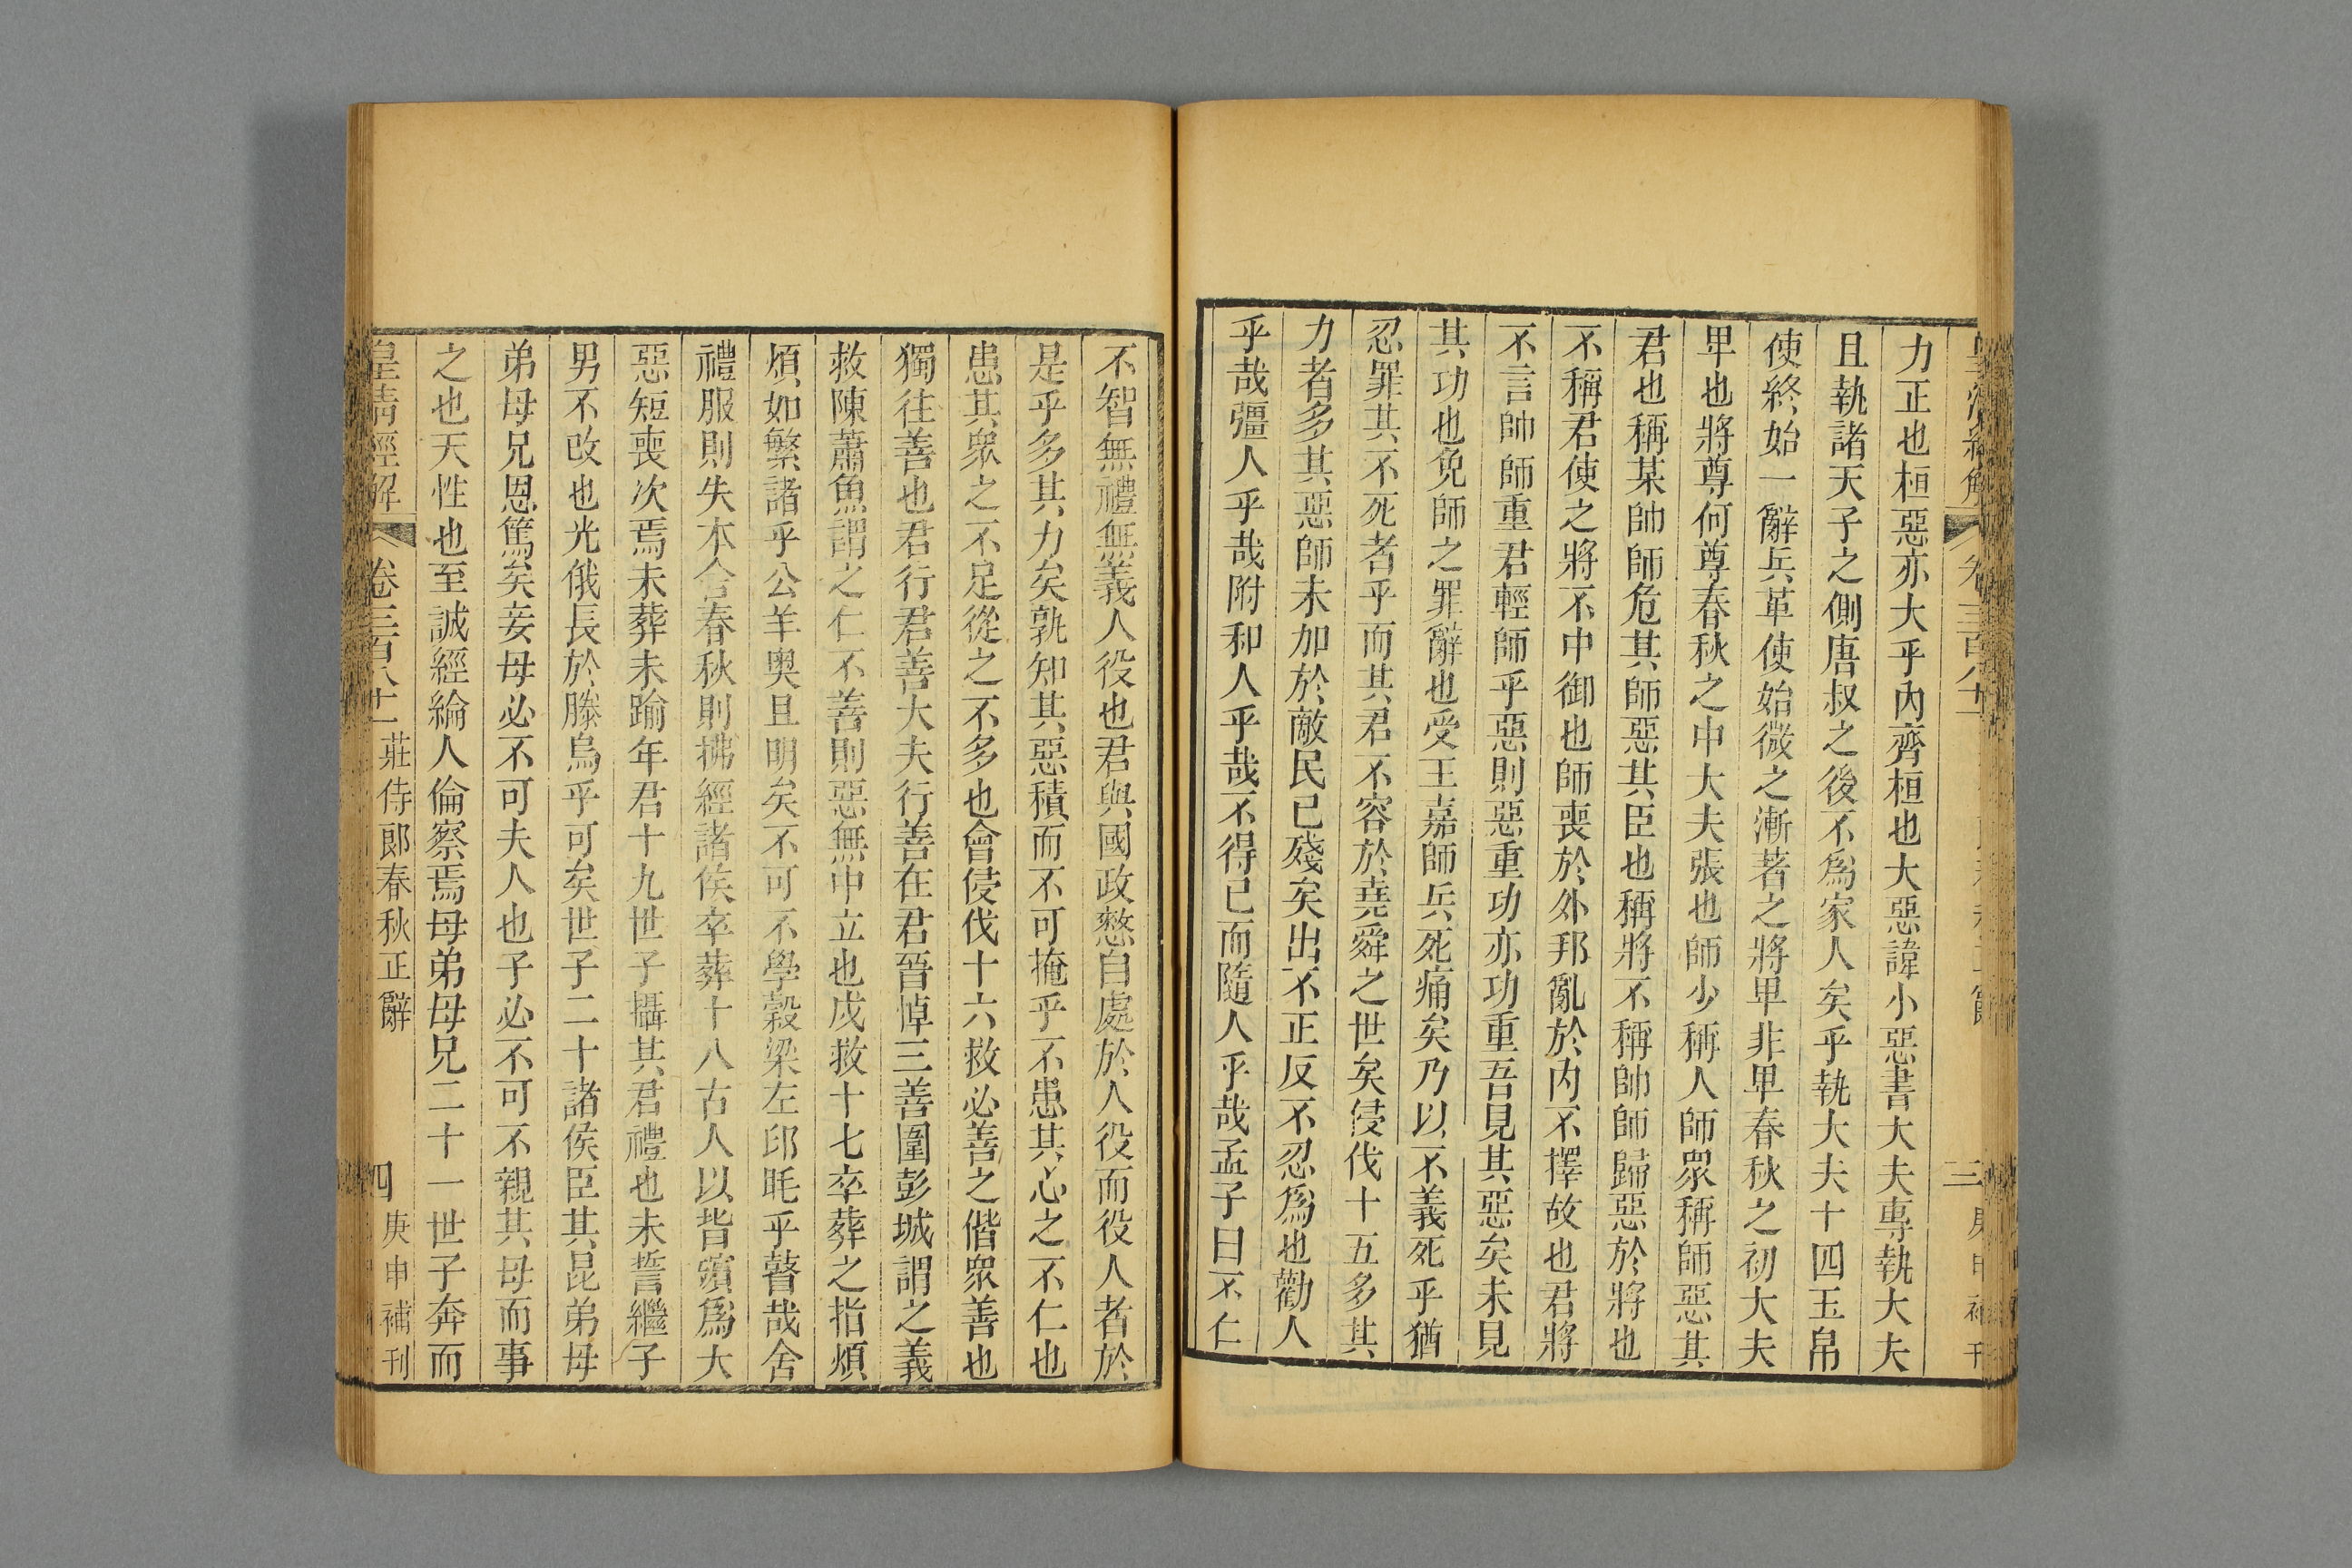 力正也桓惡亦大乎內齊桓也大惡諱小惡書大夫專執大夫
且執諸天子之側唐叔之後不爲家人矣乎執大夫十四玉帛
使終始一辭兵革使始微之漸著之將卑非卑春秋之初大夫
卑也將尊何尊春秋之中大夫張也師少稱人師眾稱師惡其
君也稱某帥師危其師惡其臣也稱將不稱帥師歸惡於將也
不稱君使之將不中御也師喪於外邦亂於內不擇故也君將
不言帥師重君輕師乎惡則惡重功亦功重吾見其惡矣未見
其功也免師之罪辭也受王嘉師兵死痛矣乃以不義死乎猶
忍罪其不死者乎而其君不容於堯舜之世矣侵伐十五多其
力者多其惡師未加於敵民已殘矣出不正反不忍爲也勸人
乎哉彊人乎哉附和人乎哉不得已而隨人乎哉孟子曰不仁
不智無禮無義人役也君與國政憖自處於人役而役人者於
是乎多其力矣孰知其惡積而不可掩乎不患其心之不仁也
患其眾之不足從之不多也會侵伐十六救必善之偕眾善也
獨往善也君行君善大夫行善在君晉悼三善圍彭城謂之義
救陳蕭魚謂之仁不善則惡無中立也戍救十七卒葬之指煩
煩如繁諸乎公羊奧且明矣不可不學穀梁左邱眊乎瞽哉舍
禮服則失本舍春秋則拂經諸侯卒葬十八古人以㫖殰爲大
惡短喪次焉未葬未踰年君十九世子攝其君禮也未誓繼子
男不改也光俄長於滕烏乎可矣世子二十諸侯臣其昆弟母
弟母兄恩篤矣妾母必不可夫人也子必不可不親其母而事
之也天性也至誠經綸人倫察焉母弟母兄二十一世子奔而
皇清經解 卷三百八十一 莊侍郎春秋正辭 四 庚申補刊